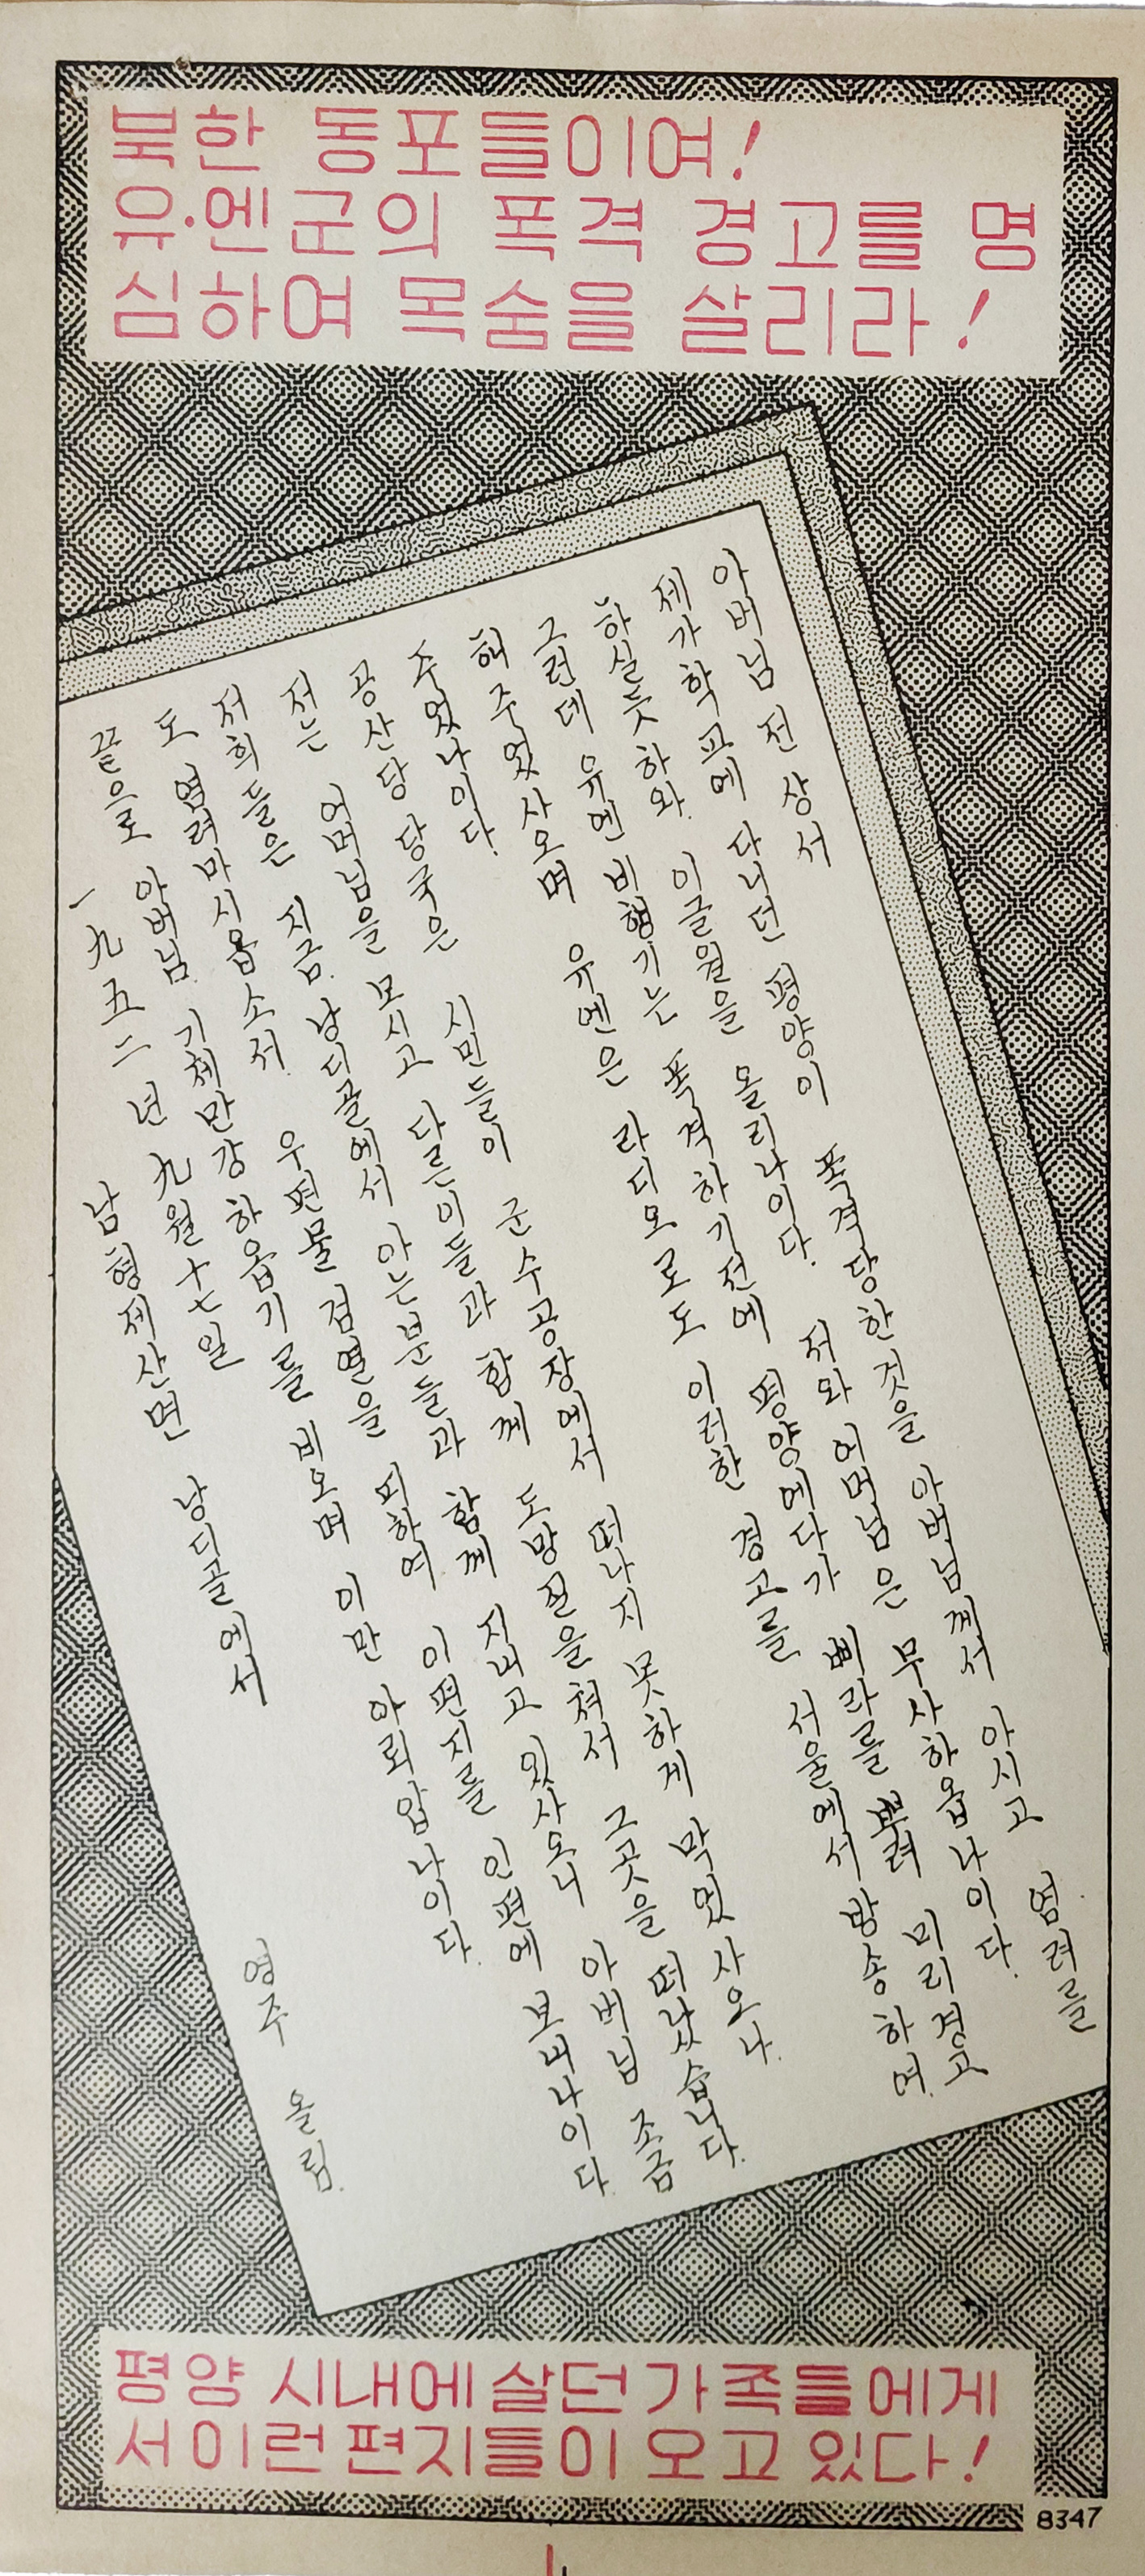 북한 동포들이여!
유·엔군의 폭격 경고를 명
심하여 목숨을 살리라!
아버님 전 상서
세가 학교에 다니던 평양이 폭격당한 것을 아버님께서 아시고 염려를
하실듯 하와. 이글월을 올리나이다. 저와 어머님은 무사하옵나이다.
그런데 유엔 비행기는 폭격하기전에 평양에다가 삐라를 뿌려 미리경고
해 주었사오며 유엔은 라디오로도 이러한 경고를 서울에서 방송하여.
주었나이다.
공산당 당국은 시민들이 군수공장에서 떠나지 못하게 막었사오나.
저는 어머님을 모시고 다른이들과 함께 도망질을 쳐서 그곳을 떠났습니다.
저희들은 지금. 낭디골에서 아는분들과 함께 지내고 있사오니 아버님 조금
도 염려마시옵소서. 우편물 검열을 피하여 이편지를 인편에 보내나이다
끝으로 아버님. 기체만강 하옵기를 비오며 이만 아뢰압나이다.
一九五二年 九월十七일
남형제산면 낭디골에서
영주 올림.
평양 시내에 살던 가족들에게
서 이런 편지들이 오고 있다!
8347